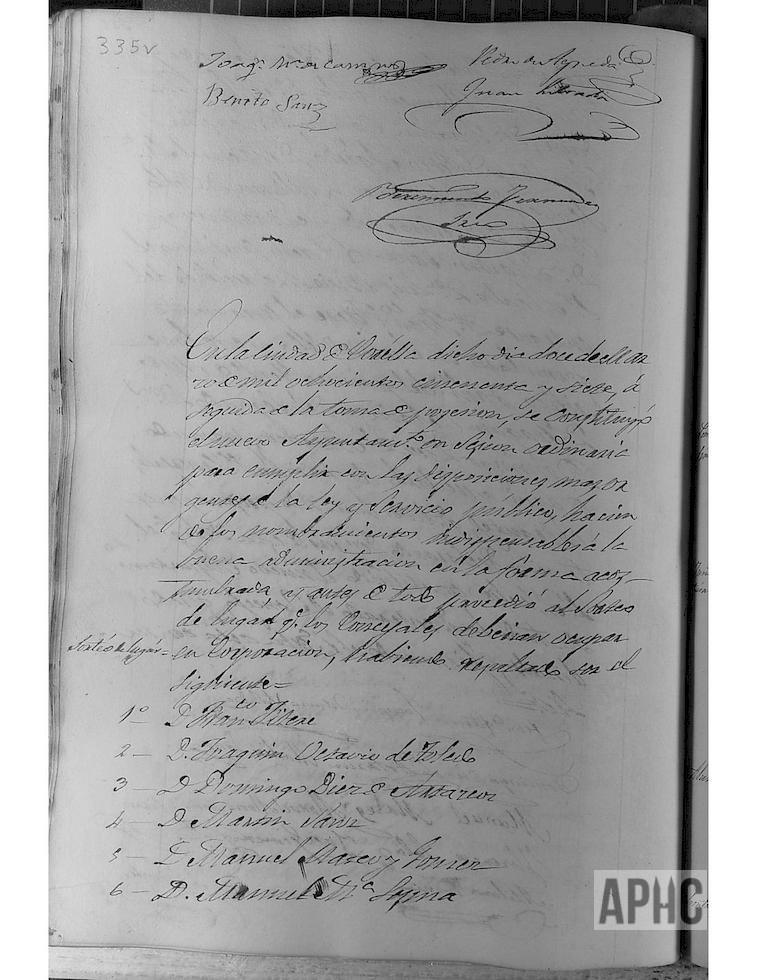 335v
Joaqn. Ma. de Campos
Pedro de Agreda
Benito Sanz
Juan Librada
Beremundo
En la Ciudad de Corella dicho dia doce de Mar
zo de mil ochocientos cincuenta y siete, á
seguida de la toma de posesion, se constituyó
el nuevo Ayuntamto. en sesion ordinaria
para cumplir con las disposiciones
de la ley y servicio público, hacien
do los nombramientos indispensables á la
buena administracion en la forma acos-
tumbrada, y antes de todo procedió al Sorteo
de lugar q. los Concejales debeian ocupar
Sorteo de lugar=
en Corporacion, habiendo resultado ser el
siguiente=
1º D. Franco.
2 - D. Joaquin Octavio de Toledo
3 - D Domingo Diez
4 - D Martin Sanz
5 - D Manuel Marco y Gomez
6 - D. Manuel Ma.
APHC